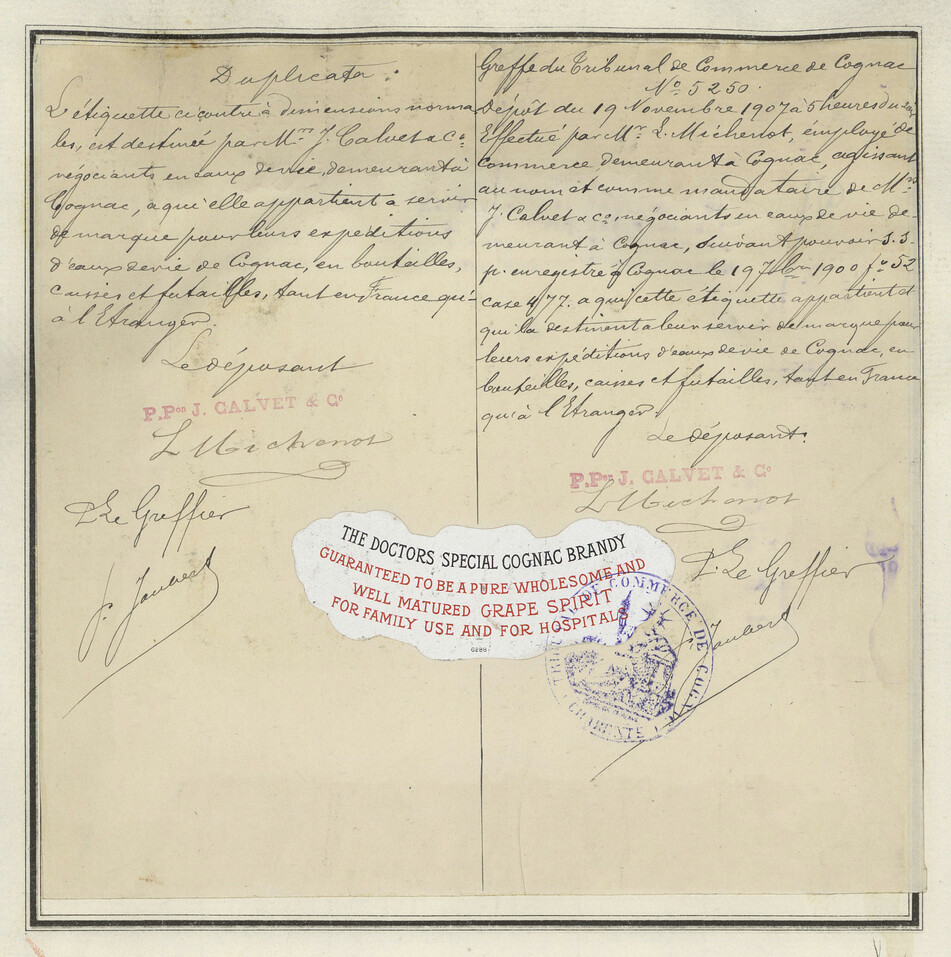 Duplicata:
L'étiquette ci contre à dimensions norma
les, est destinée par Mrs J. Calvet & Co
négociants en eaux de vie, demeurant à
Cognac, a qui elle appartient a servir
de marque pour leurs expeditions
d'eaux de vie de Cognac, en bouteilles,
caisses et futailles, tant en France qu'
à l'Etranger.
Le déposant
P.Pon J. CALVET & Co
L Michenot
Le Greffier
Joubert
Greffe du Tribunal de Commerce de Cognac
No 5250.
Dépôt du 19 Novembre 1907 à 5 heures du soir
Effectué par Mr L. Michenot, employé de
Commerce demeurant à Cognac, agissant
au nom et comme mandataire de Mrs
J. Calvet & Co, négociants en eaux de vie de-
meurant à Cognac, suivant pouvoir S.S.
p. enregistré à Cognac le 19 7bre 1900 fo 52
case 477. a qui cette étiquette appartient et
qui la destinent a leur servir de marque pour
leurs expéditions d'eaux de vie de Cognac, en
bouteilles, caisses et futailles, tant en France
qu'à l'Etranger.
Le déposant.
P.Pon J. CALVET & Co
L Michenot
Le Greffier
Joubert
THE DOCTORS SPECIAL COGNAC BRANDY
GUARANTEED TO BE A PURE WHOLESOME AND
WELL MATURED GRAPE SPIRIT
FOR FAMILY USE AND FOR HOSPITALS
6288
TRIBUNAL DE COMMERCE DE COGNAC
CHARENTE